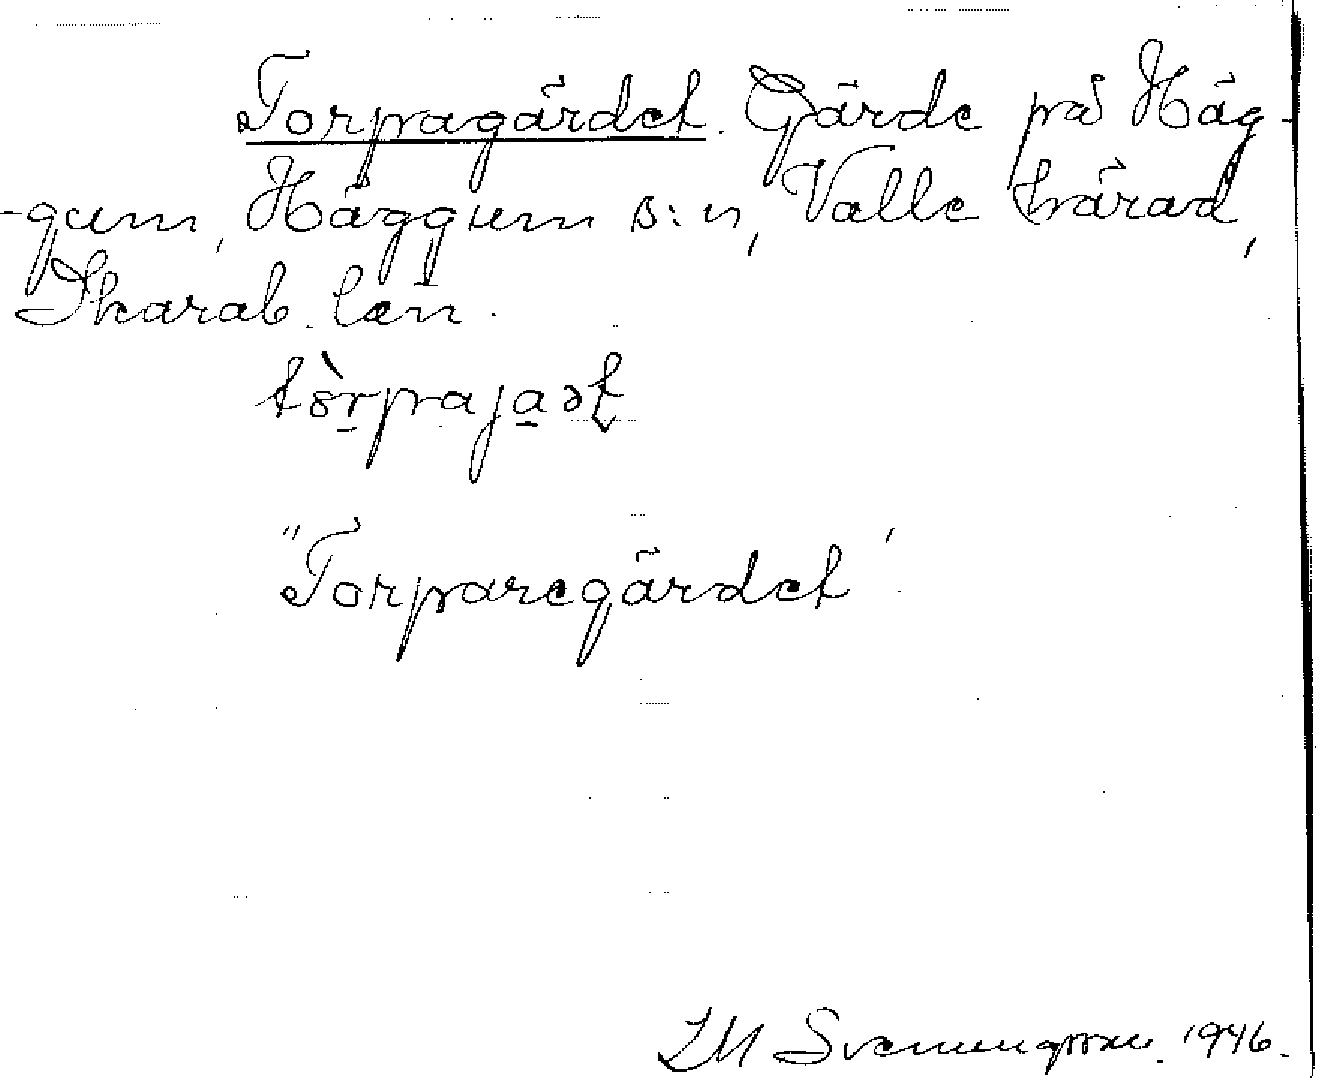 Torpagärdet. Gärde på Häg-
-gum, Häggum s:n, Valle härad,
Skarab. län.
tòrpajaət
"Torparegärdet"
Svenungsson. 1946.